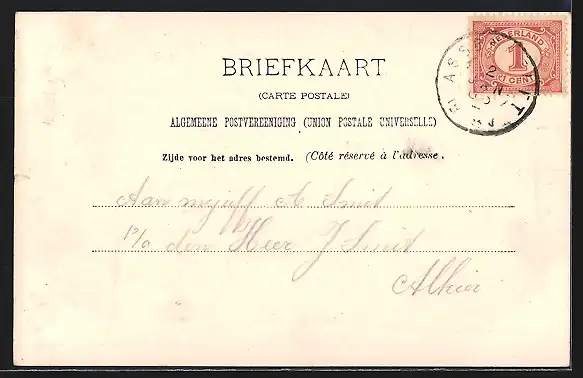 BRIEFKAART
(CARTE POSTALE)
ALGEMEENE POSTVEREENIGING (UNION POSTALE UNIVERSELLE)
Zijde voor het adres bestemd. (Côté réservé à l'adresse.
NEDERLAND
1
CENT
Aan mejuff A Smit
P/a den Heer J Smit
Alhier